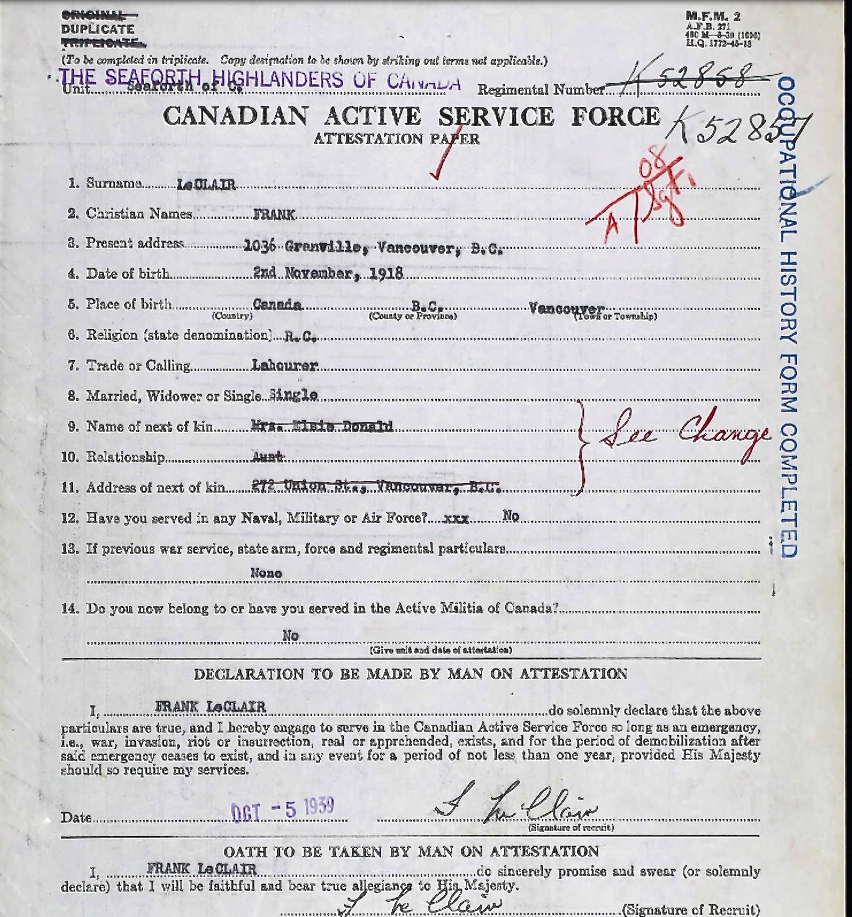 ORIGINAL
DUPLICATE
TRIPLICATE.
M.F.M. 2
A.F.B. 271
H.Q. 1772-45-13
(To be completed in triplicate. Copy designation to be shown by striking out terms not applicable.)
THE SEAFORTH HIGHLANDERS OF CANADA
Unit Seaforth of C. Regimental Number K 52858
CANADIAN ACTIVE SERVICE FORCE K 52857
ATTESTATION PAPER
08
A/Sgt.
OCCUPATIONAL HISTORY FORM COMPLETED
1. Surname LeCLAIR
2. Christian Names FRANK
3. Present address 1036 Granville, Vancouver, B.C.
4. Date of birth 2nd November, 1918
5. Place of birth Canada B.C. Vancouver
(Country) (County or Province) (Town or Township)
6. Religion (state denomination) R.C.
7. Trade or Calling Labourer
8. Married, Widower or Single Single
9. Name of next of kin Mrs. Elsie Donald
See Change
10. Relationship Aunt
11. Address of next of kin 272 Union St., Vancouver, B.C.
12. Have you served in any Naval, Military or Air Force? xxx No
13. If previous war service, state arm, force and regimental particulars
None
14. Do you now belong to or have you served in the Active Militia of Canada?
No
(Give unit and date of attestation)
DECLARATION TO BE MADE BY MAN ON ATTESTATION
I, FRANK LeCLAIR do solemnly declare that the above
particulars are true, and I hereby engage to serve in the Canadian Active Service Force so long as an emergency,
i.e., war, invasion, riot or insurrection, real or apprehended, exists, and for the period of demobilization after
said emergency ceases to exist, and in any event for a period of not less than one year, provided His Majesty
should so require my services.
Date OCT -5 1939 F Le Clair
(Signature of recruit)
OATH TO BE TAKEN BY MAN ON ATTESTATION
I, FRANK LeCLAIR do sincerely promise and swear (or solemnly
declare) that I will be faithful and bear true allegiance to His Majesty.
F Le Clair (Signature of Recruit)